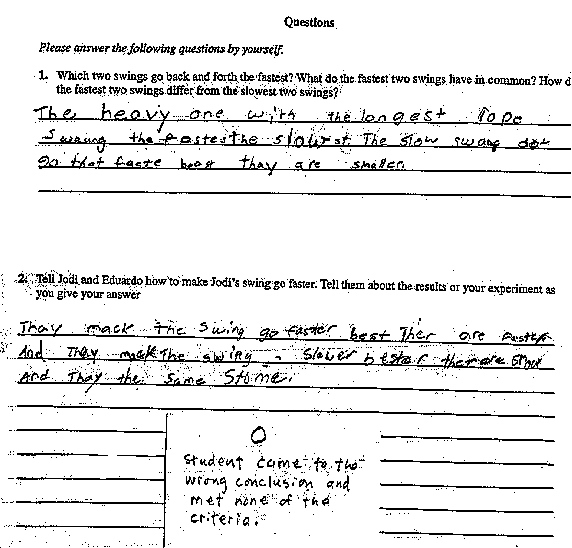 Questions
Please answer the following questions by yourself.
1. Which two swings go back and forth the fastest? What do the fastest two swings have in common? How d
the fastest two swings differ from the slowest two swings?
The heavy one with the longest rope
Swaung the fastest the slowrst. The slow swang dot
go that faste best they are smaller.
2. Tell Jodi and Eduardo how to make Jodi's swing go faster. Tell them about the results or your experiment as
you give your answer
Thay mack the swing go faster best Ther are faster
And They mack the swing slower
And Thay the same Stome.
0
Student came to the
wrong conclusion and
met none of the
criteria.